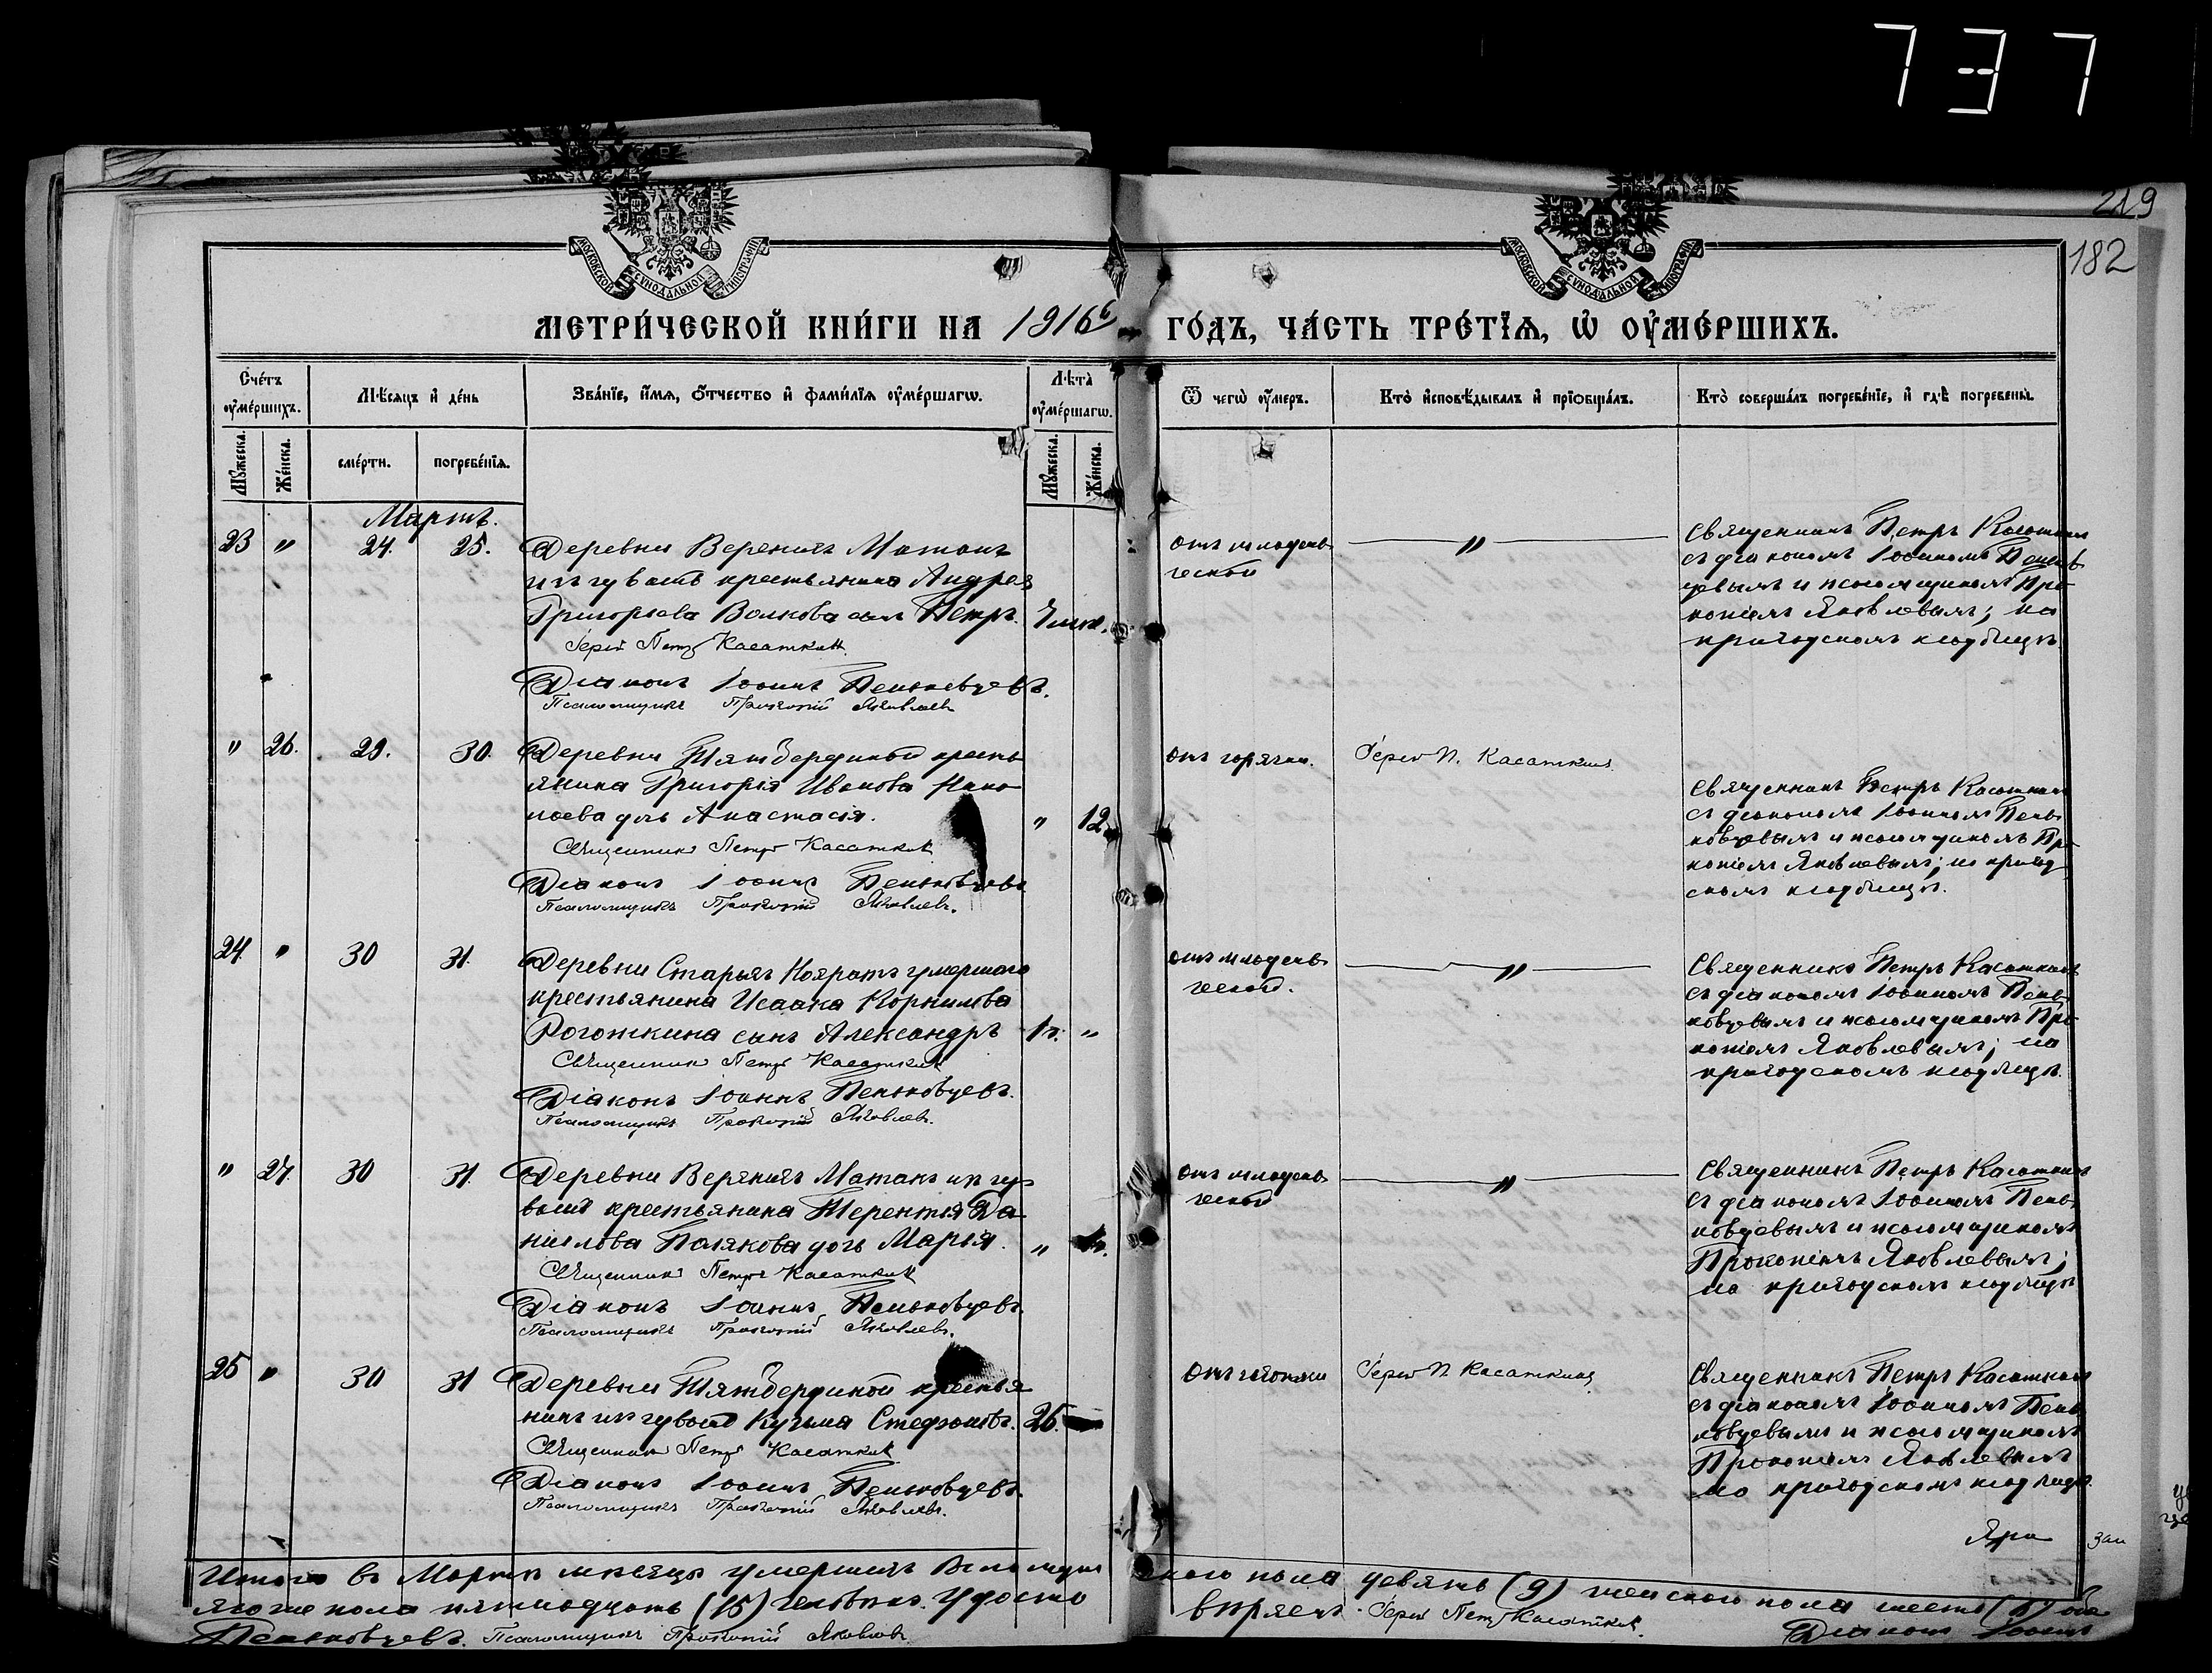 737
219
182
МОСКОВСКОЙ СѴНОДАЛЬНОЙ ТИПОГРАФІИ
МОСКОВСКОЙ СѴНОДАЛЬНОЙ ТИПОГРАФІИ
МЕТРИ́ЧЕСКОЙ КНИ́ГИ НА 1916й ГО́ДЪ, ЧА́СТЬ ТРЕ́ТЇѦ, Ѡ҆ ОУ҆МЕ́РШИХЪ.
Сче́тъ оу҆ме́ршихъ.
Мꙋжеска.
Же́нска.
Мѣ́сѧцъ и҆ де́нь
сме́рти.
погребе́нїѧ.
Зва́нїе, и҆́мѧ, ѻ҆́тчество и҆ фами́лїѧ оу҆ме́ршагѡ.
Лѣ́та оу҆ме́ршагѡ.
Мꙋжеска.
Же́нска.
Ѿ чегѡ̀ оу҆́меръ.
Кто̀ и҆сповѣ́дывалъ и҆ прїѡбща́лъ.
Кто̀ соверша́лъ погребе́нїе, и҆ гдѣ̀ погребены̀.
Мартъ.
23 " 24. 25. Деревни Верхнихъ Матакъ
крестьянина Андрея
Григорьева Волкова сынъ Петръ.
Іерей Петръ Касаткин
Діаконъ Іоаннъ Пеньковцевъ.
Псаломщикъ Прокопій Яковлевъ
отъ младен-
ческой
"
Священникъ Петръ Касаткинъ
съ діакономъ Іоанномъ Пеньков-
цевымъ и псаломщикомъ Про-
копіемъ Яковлевымъ; на
приходскомъ кладбищѣ.
" 26. 29. 30. Деревни Тямбердиной кресть-
янина Григорія Иванова
дочь Анастасія. " 12
Священник Петръ Касаткин
Діаконъ Іоаннъ Пеньковцевъ
Псаломщикъ Прокопій Яковлевъ.
отъ горячки.
Іерей П. Касаткинъ
Священникъ Петръ Касаткинъ
съ діакономъ Іоанномъ Пень-
ковцевымъ и псаломщикомъ Про-
копіемъ Яковлевымъ; на приход-
скомъ кладбищѣ.
24 " 30 31. Деревни Старыхъ Ноxратъ умершаго
крестьянина Исаака Корнилова
Рогожкина сынъ Александръ 1г. "
Священник Петръ Касаткин
Діаконъ Іоаннъ Пеньковцевъ.
Псаломщикъ Прокопій Яковлевъ.
отъ младен-
ческой.
"
Священникъ Петръ Касаткинъ
съ діакономъ Іоанномъ Пень-
ковцевымъ и псаломщикомъ Про-
копіемъ Яковлевымъ; на
приходскомъ кладбищѣ.
" 27. 30 31. Деревни Верхнихъ Матакъ
крестьянина Терентія Да-
нилова Полякова дочь Марья. "
Священник Петръ Касаткин
Діаконъ Іоаннъ Пеньковцевъ.
Псаломщикъ Прокопій Яковлевъ.
отъ младен-
ческой
"
Священникъ Петръ Касаткинъ
съ діакономъ Іоанномъ Пень-
ковцевымъ и псаломщикомъ
Прокопіемъ Яковлевымъ;
на приходскомъ кладбищѣ
25 " 30 31 Деревни Тямбердиной крестья-
нинъ Кузьма Стефановъ. 26.
Священник Петръ Касаткин
Діаконъ Іоаннъ Пеньковцевъ.
Псаломщикъ Прокопій Яковлевъ.
отъ чахотки
Іерей П. Касаткинъ
Священникъ Петръ Касаткинъ
съ діакономъ Іоанномъ Пень-
ковцевымъ и псаломщикомъ
Прокопіемъ Яковлевымъ
на приходскомъ кладбищѣ.
Итого въ Мартѣ мѣсяцѣ умершихъ было мужескаго пола девять (9) женскаго пола шесть (6) обо-
его пола пятнадцать (15) человѣкъ. Іерей Петръ Касаткин. Діаконъ Іоаннъ
Пеньковцевъ. Псаломщикъ Прокопій Яковлевъ.